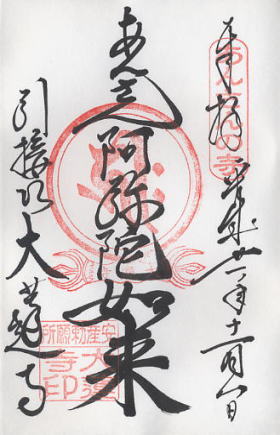 奉拝
平成廿一年十一月八日
阿弥陀如来
引接山大蓮寺
安産勅願所
大蓮寺印